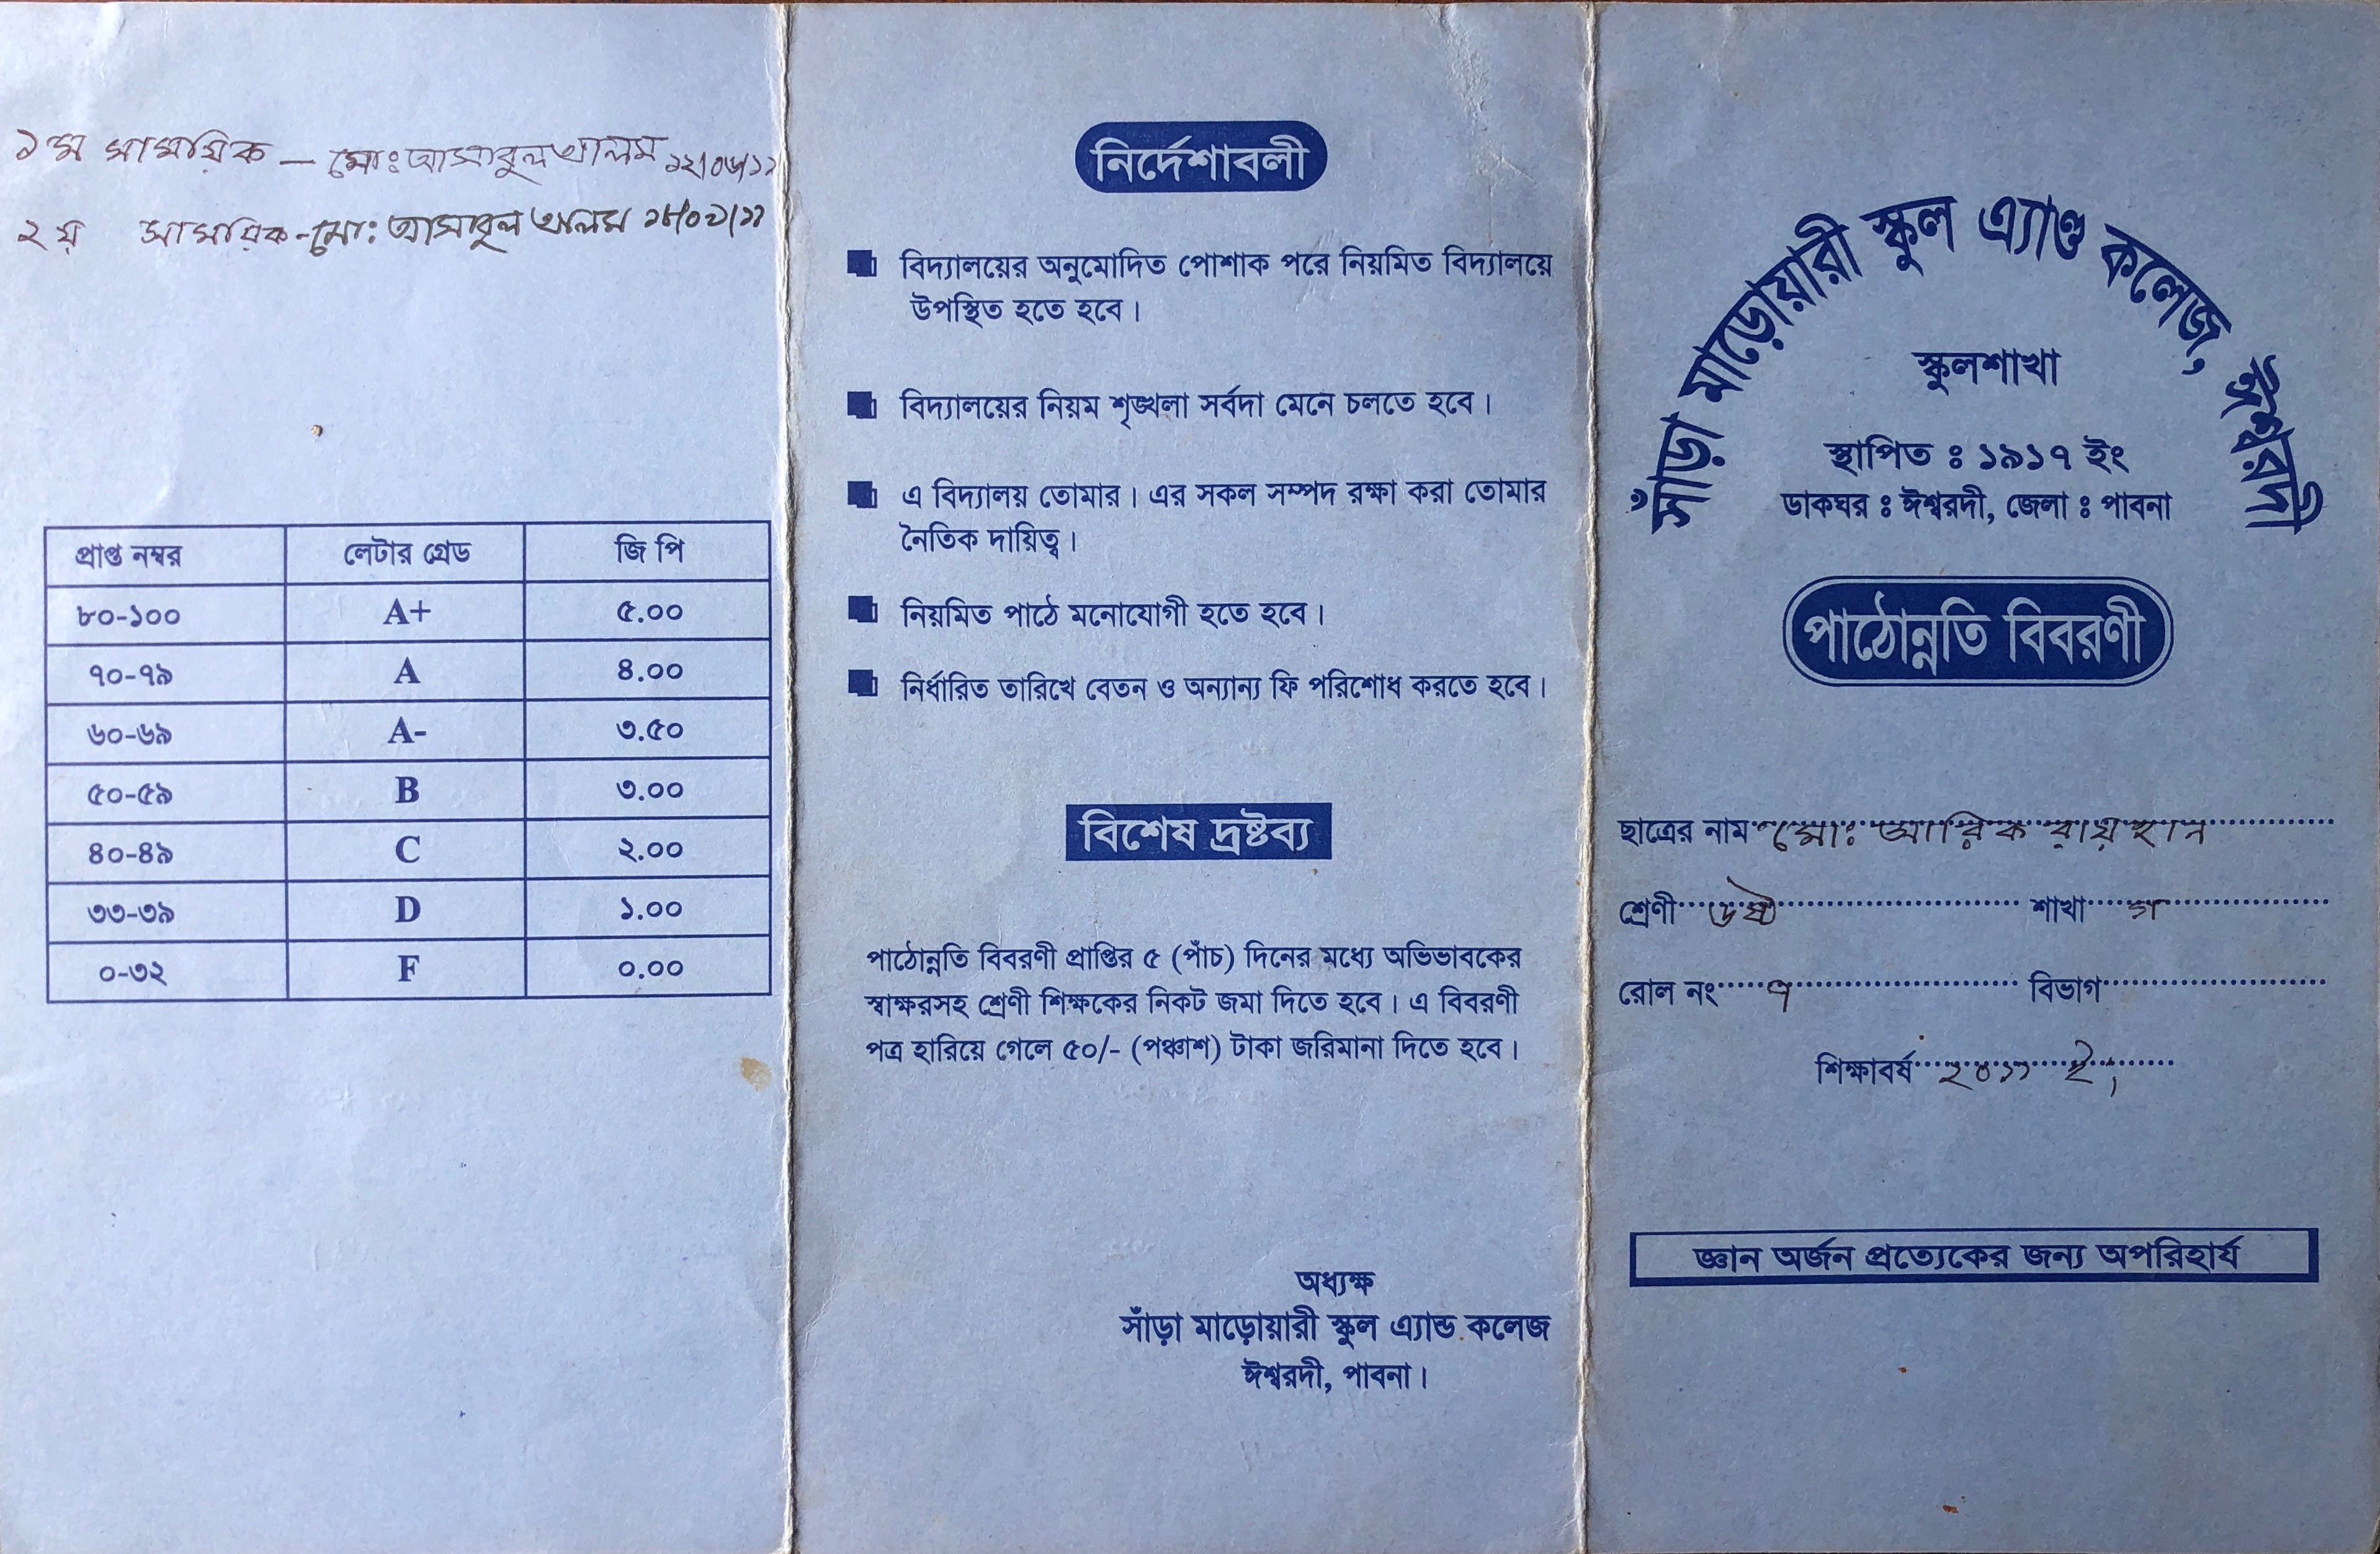 ১ম সাময়িক – মোঃ আসাবুল আলম ১২/০৬/১১
২য় সাময়িক - মোঃ আসাবুল আলম ১৮/০৯/১১
প্রাপ্ত নম্বর লেটার গ্রেড জি পি
৮০-১০০ A+ ৫.০০
৭০-৭৯ A ৪.০০
৬০-৬৯ A- ৩.৫০
৫০-৫৯ B ৩.০০
৪০-৪৯ C ২.০০
৩৩-৩৯ D ১.০০
০-৩২ F ০.০০
নির্দেশাবলী
বিদ্যালয়ের অনুমোদিত পোশাক পরে নিয়মিত বিদ্যালয়ে
উপস্থিত হতে হবে।
বিদ্যালয়ের নিয়ম শৃঙ্খলা সর্বদা মেনে চলতে হবে।
এ বিদ্যালয় তোমার। এর সকল সম্পদ রক্ষা করা তোমার
নৈতিক দায়িত্ব।
নিয়মিত পাঠে মনোযোগী হতে হবে।
নির্ধারিত তারিখে বেতন ও অন্যান্য ফি পরিশোধ করতে হবে।
বিশেষ দ্রষ্টব্য
পাঠোন্নতি বিবরণী প্রাপ্তির ৫ (পাঁচ) দিনের মধ্যে অভিভাবকের
স্বাক্ষরসহ শ্রেণী শিক্ষকের নিকট জমা দিতে হবে। এ বিবরণী
পত্র হারিয়ে গেলে ৫০/- (পঞ্চাশ) টাকা জরিমানা দিতে হবে।
অধ্যক্ষ
সাঁড়া মাড়োয়ারী স্কুল এ্যান্ড কলেজ
ঈশ্বরদী, পাবনা।
সাঁড়া মাড়োয়ারী স্কুল এ্যাণ্ড কলেজ, ঈশ্বরদী
স্কুলশাখা
স্থাপিত : ১৯১৭ ইং
ডাকঘর : ঈশ্বরদী, জেলা : পাবনা
পাঠোন্নতি বিবরণী
ছাত্রের নাম মোঃ আরিক রায়হান
শ্রেণী ৬ষ্ঠ শাখা গ
রোল নং ৭ বিভাগ
শিক্ষাবর্ষ ২০১১ ইং
জ্ঞান অর্জন প্রত্যেকের জন্য অপরিহার্য